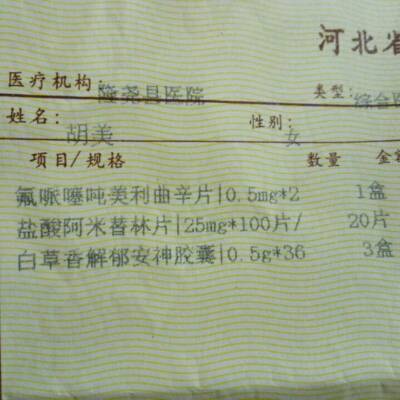 河北省
医疗机构: 隆尧县医院 类型: 综合医
姓名: 胡美 性别: 女
项目/规格 数量 金额
氟哌噻吨美利曲辛片|0.5mg*2 1盒
盐酸阿米替林片|25mg*100片/ 20片
白草香解郁安神胶囊|0.5g*36 3盒